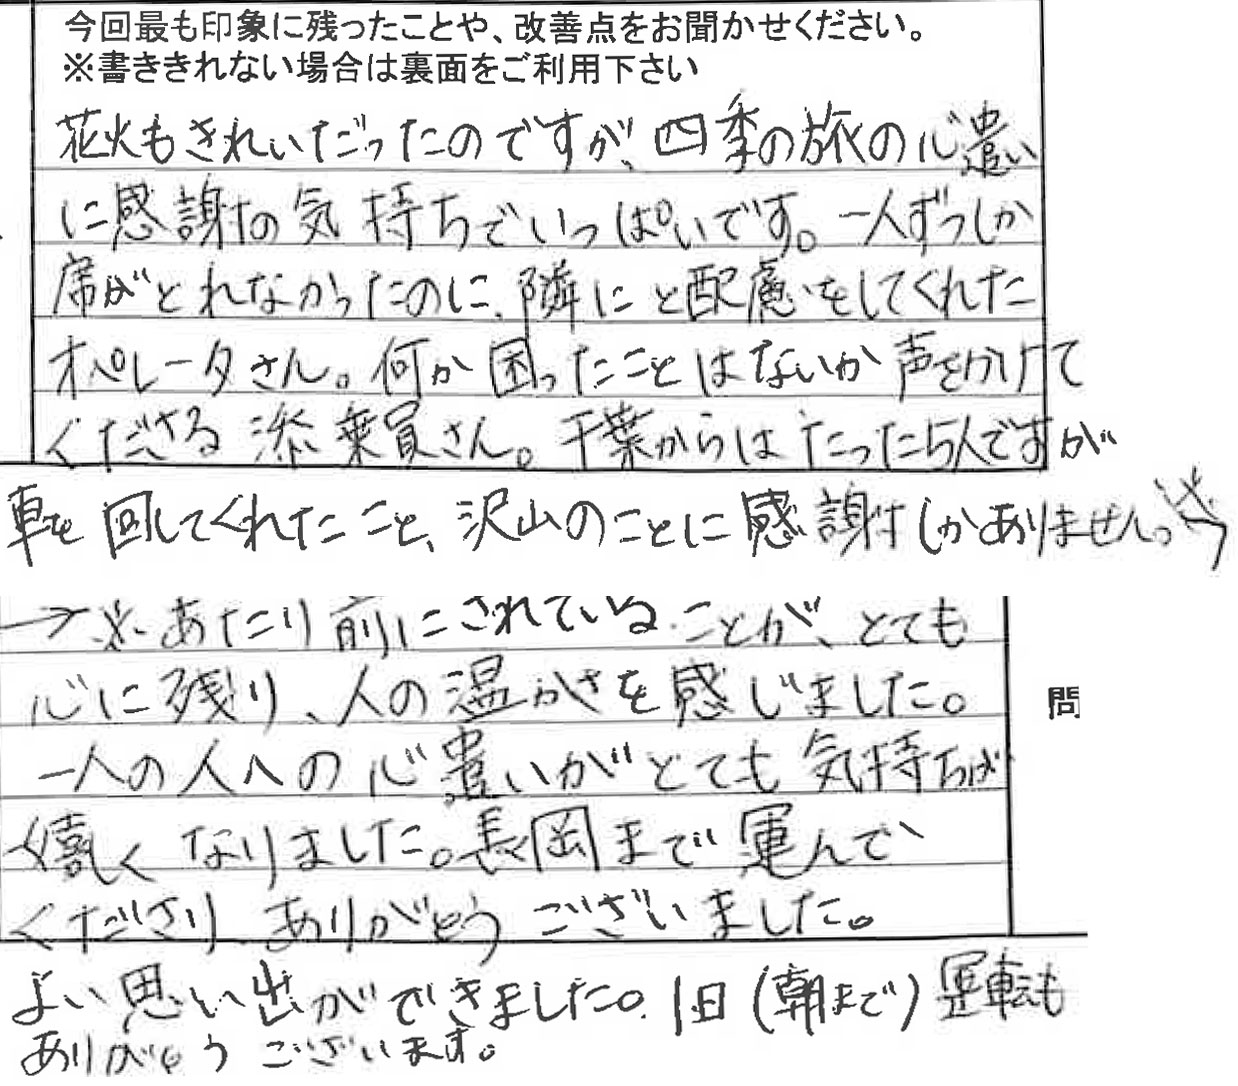 今回最も印象に残ったことや、改善点をお聞かせください。
※書ききれない場合は裏面をご利用下さい
花火もきれいだったのですが、四季の旅の心遣い
に感謝の気持ちでいっぱいです。一人ずつしか
席がとれなかったのに、隣にと配慮をしてくれた
オペレータさん。何か困ったことはないか声をかけて
くださる添乗員さん。千葉からはたった5人ですが
車を回してくれたこと、沢山のことに感謝しかありません。
→※あたり前にされていることが、とても
心に残り、人の温かさを感じました。
一人の人への心遣いがとても気持ちよ
く嬉しくなりました。長岡まで運んで
くださり、ありがとうございました。
よい思い出ができました。1日(朝まで)運転も
ありがとうございます。
問